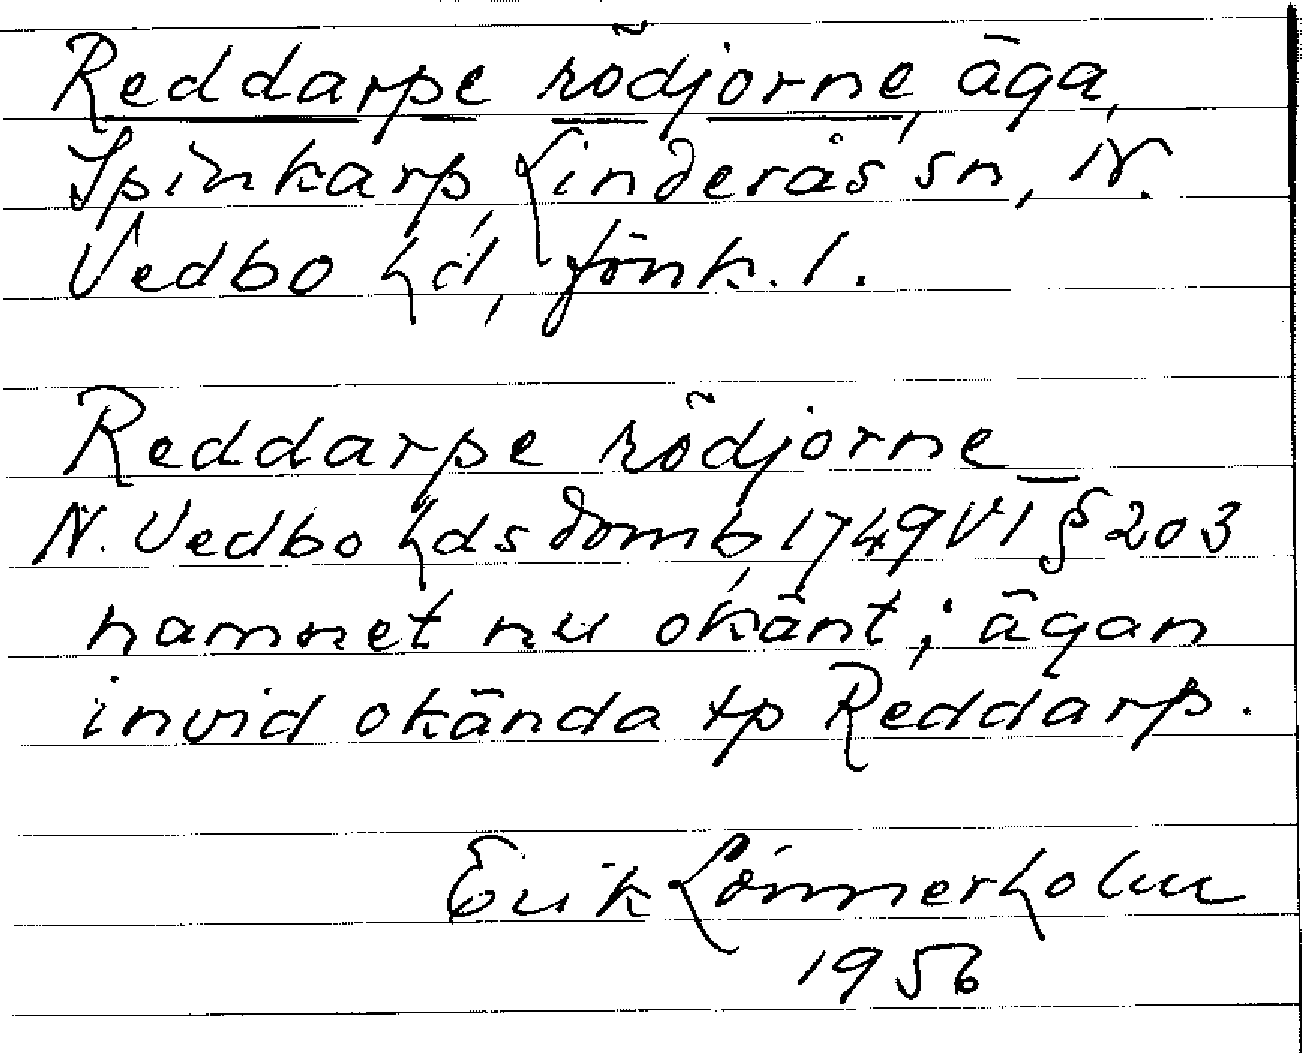 Reddarpe rödjorne, äga,
Spinkarp, Linderås sn, N.
Vedbo hd, Jönk. l.
Reddarpe rödjorne_
N. Vedbo hds domb, 1749 VI § 203
namnet nu okänt; ägan
invid okända tp Reddarp.
Erik Lönnerholm
1956